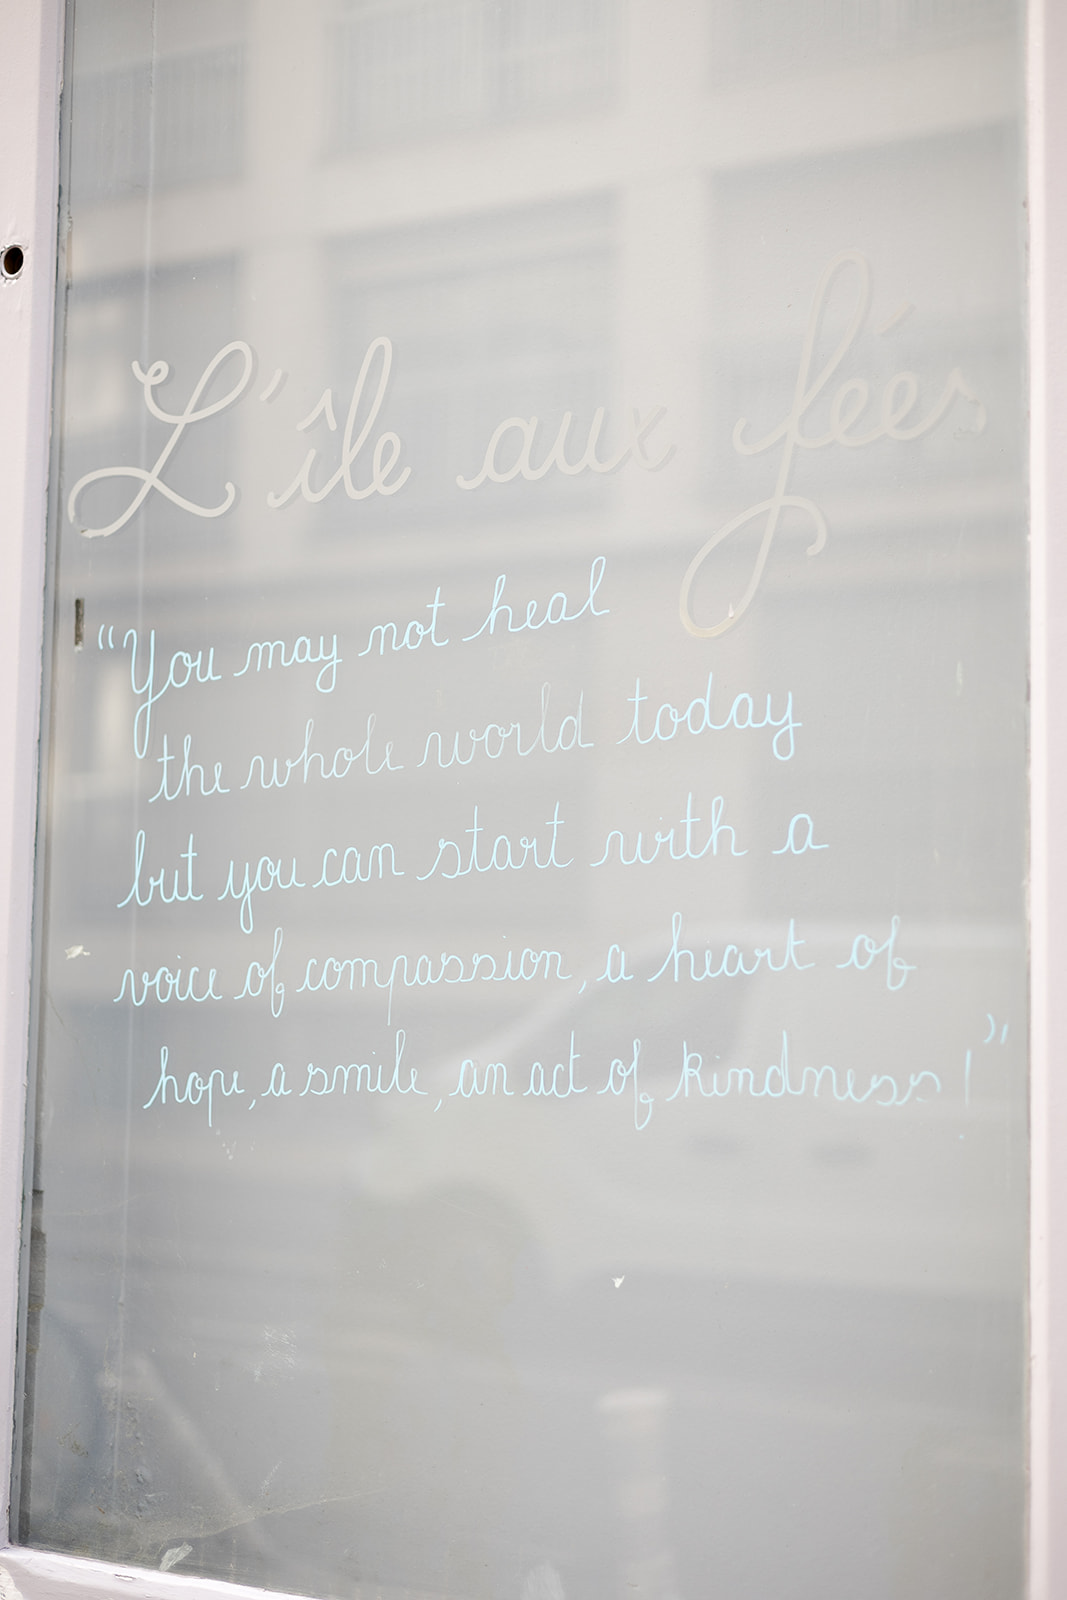 L'île aux fées
“You may not heal
the whole world today
but you can start with a
voice of compassion, a heart of
hope, a smile, an act of kindness!”